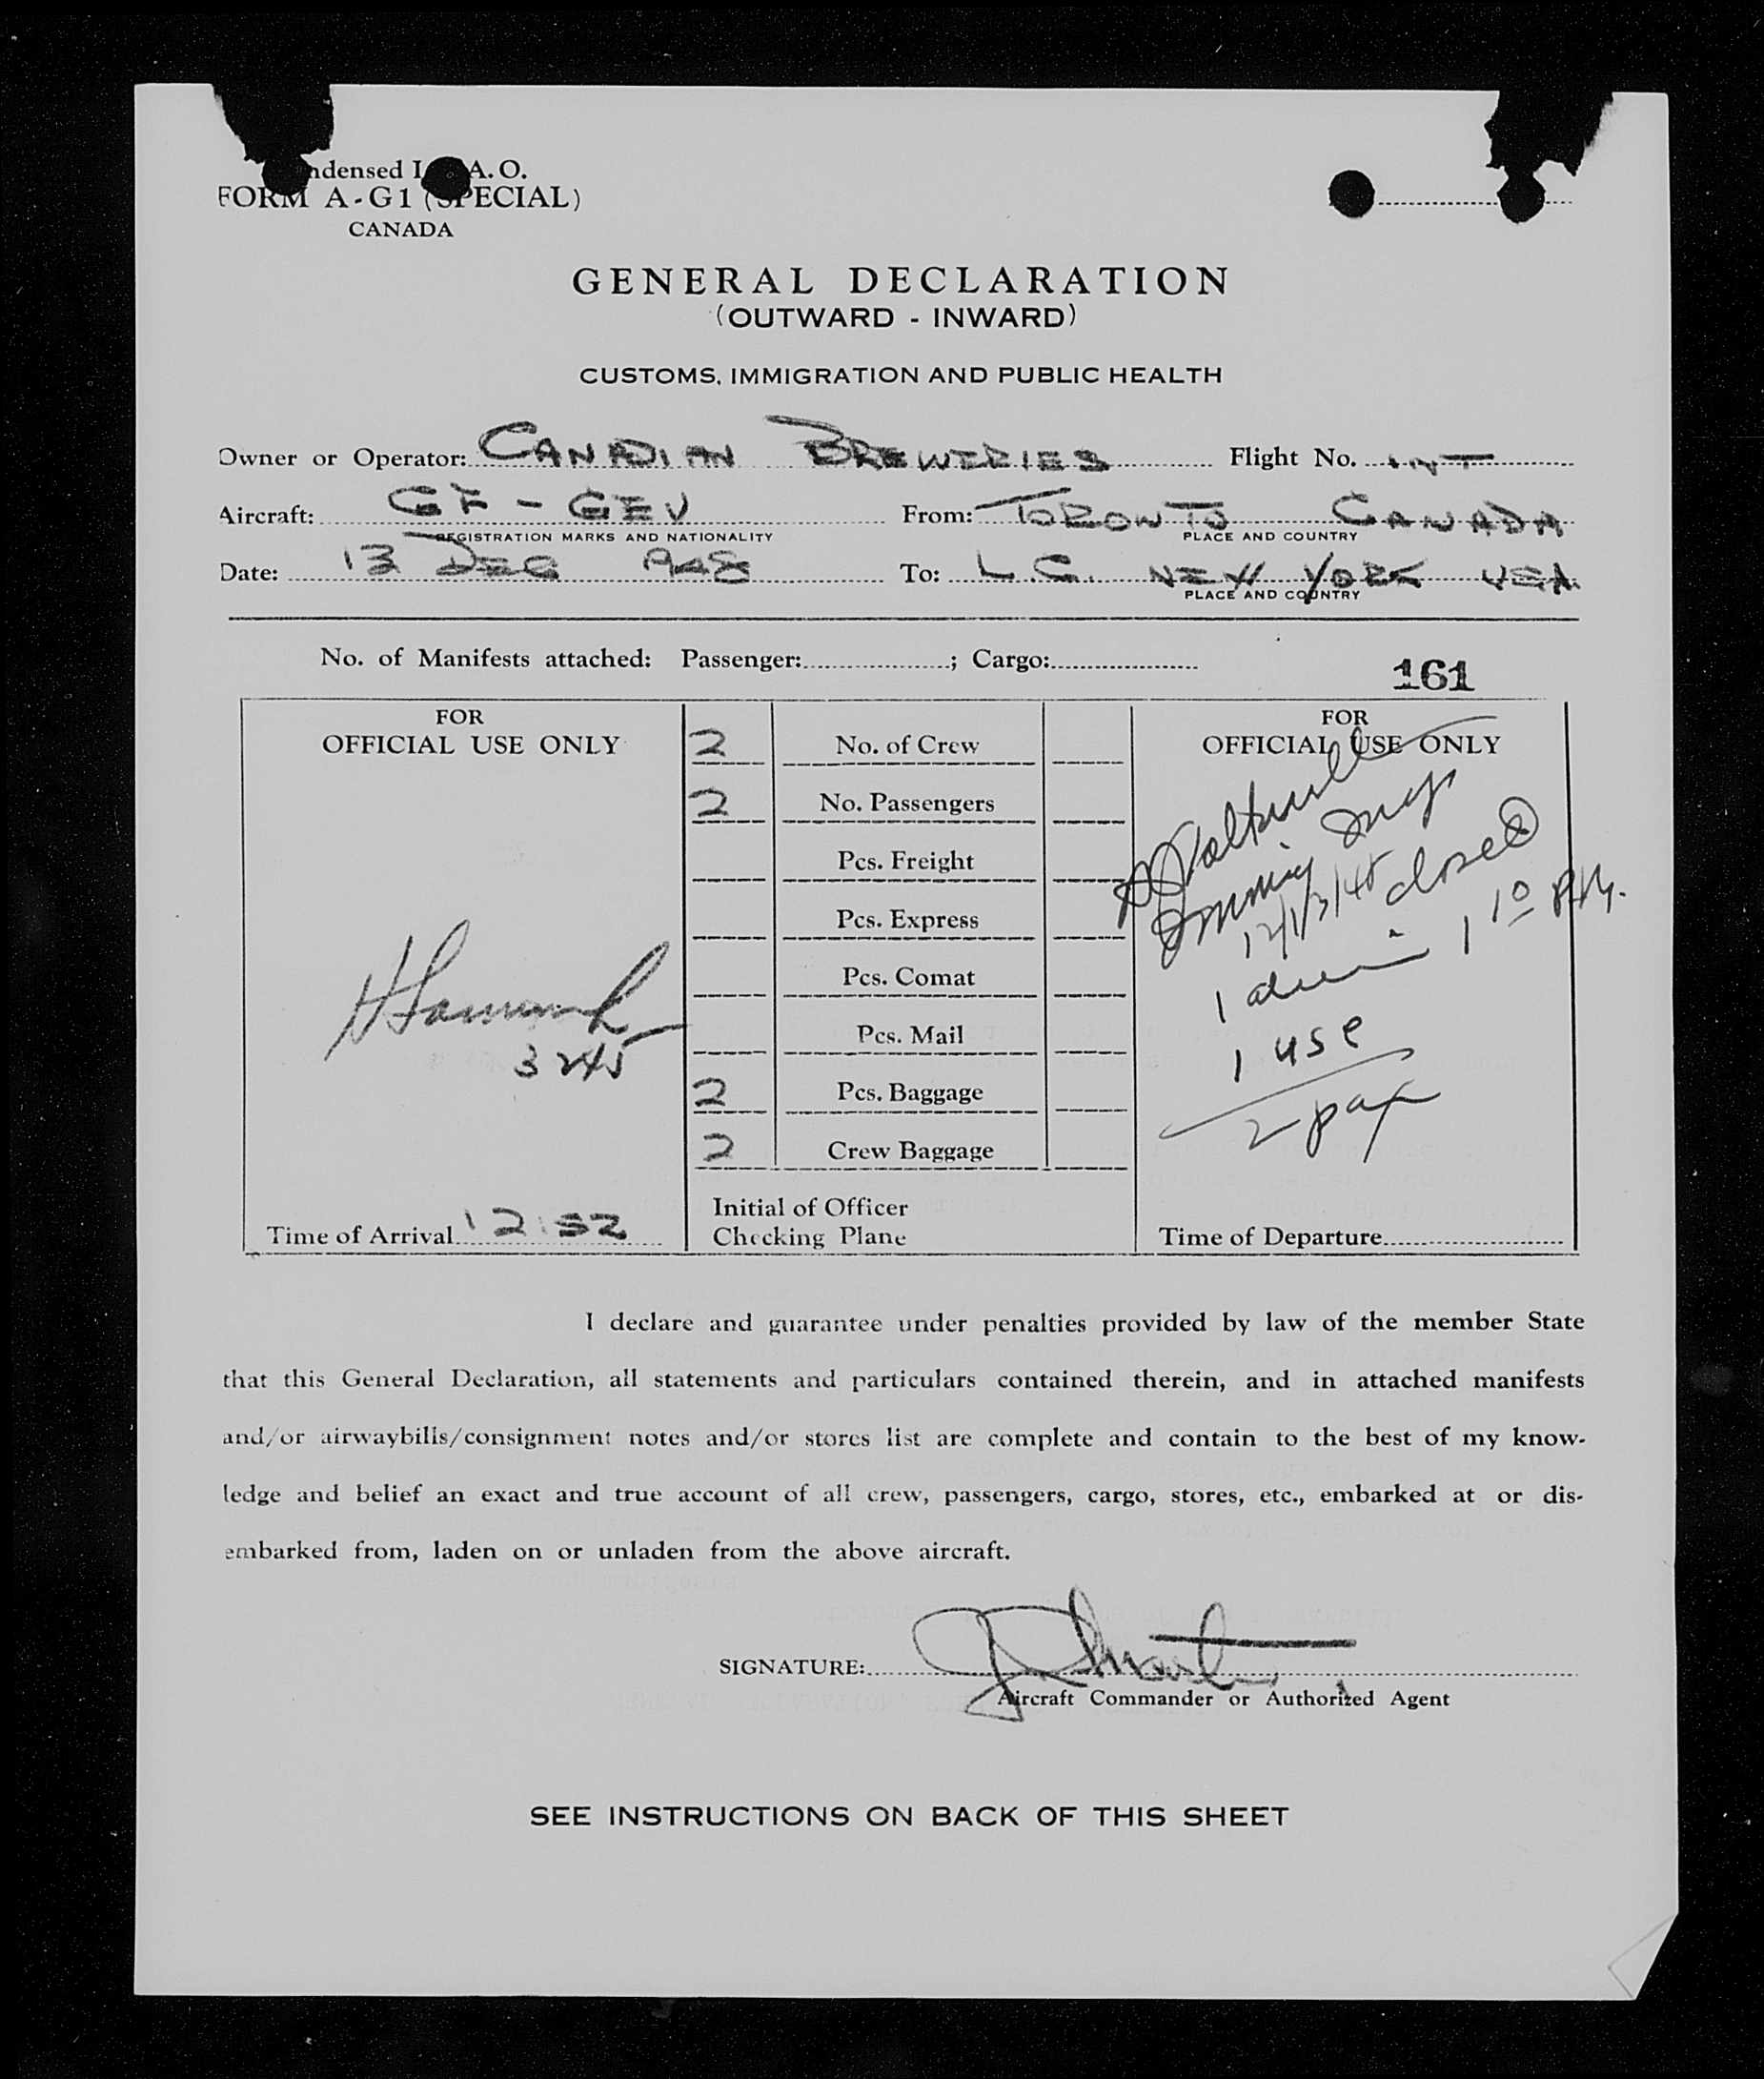 ndensed I A. O.
FORM A-G1 (SPECIAL)
CANADA
GENERAL DECLARATION
(OUTWARD - INWARD)
CUSTOMS, IMMIGRATION AND PUBLIC HEALTH
Owner or Operator: CANADIAN BREWERIES Flight No. INT
Aircraft: CF - GEV From: TORONTO CANADA
REGISTRATION MARKS AND NATIONALITY PLACE AND COUNTRY
Date: 13 DEC 1948 To: L.G. NEW YORK USA
PLACE AND COUNTRY
No. of Manifests attached: Passenger: ; Cargo:
161
FOR
OFFICIAL USE ONLY
3245
Time of Arrival 12:52
2 No. of Crew
2 No. Passengers
Pcs. Freight
Pcs. Express
Pcs. Comat
Pcs. Mail
2 Pcs. Baggage
2 Crew Baggage
Initial of Officer
Checking Plane
FOR
OFFICIAL USE ONLY
Immig Insp
12/13/48 closed
1 10 P.M.
1 USC
2 pax
Time of Departure
I declare and guarantee under penalties provided by law of the member State
that this General Declaration, all statements and particulars contained therein, and in attached manifests
and/or airwaybills/consignment notes and/or stores list are complete and contain to the best of my know-
ledge and belief an exact and true account of all crew, passengers, cargo, stores, etc., embarked at or dis-
embarked from, laden on or unladen from the above aircraft.
SIGNATURE: Martin
Aircraft Commander or Authorized Agent
SEE INSTRUCTIONS ON BACK OF THIS SHEET